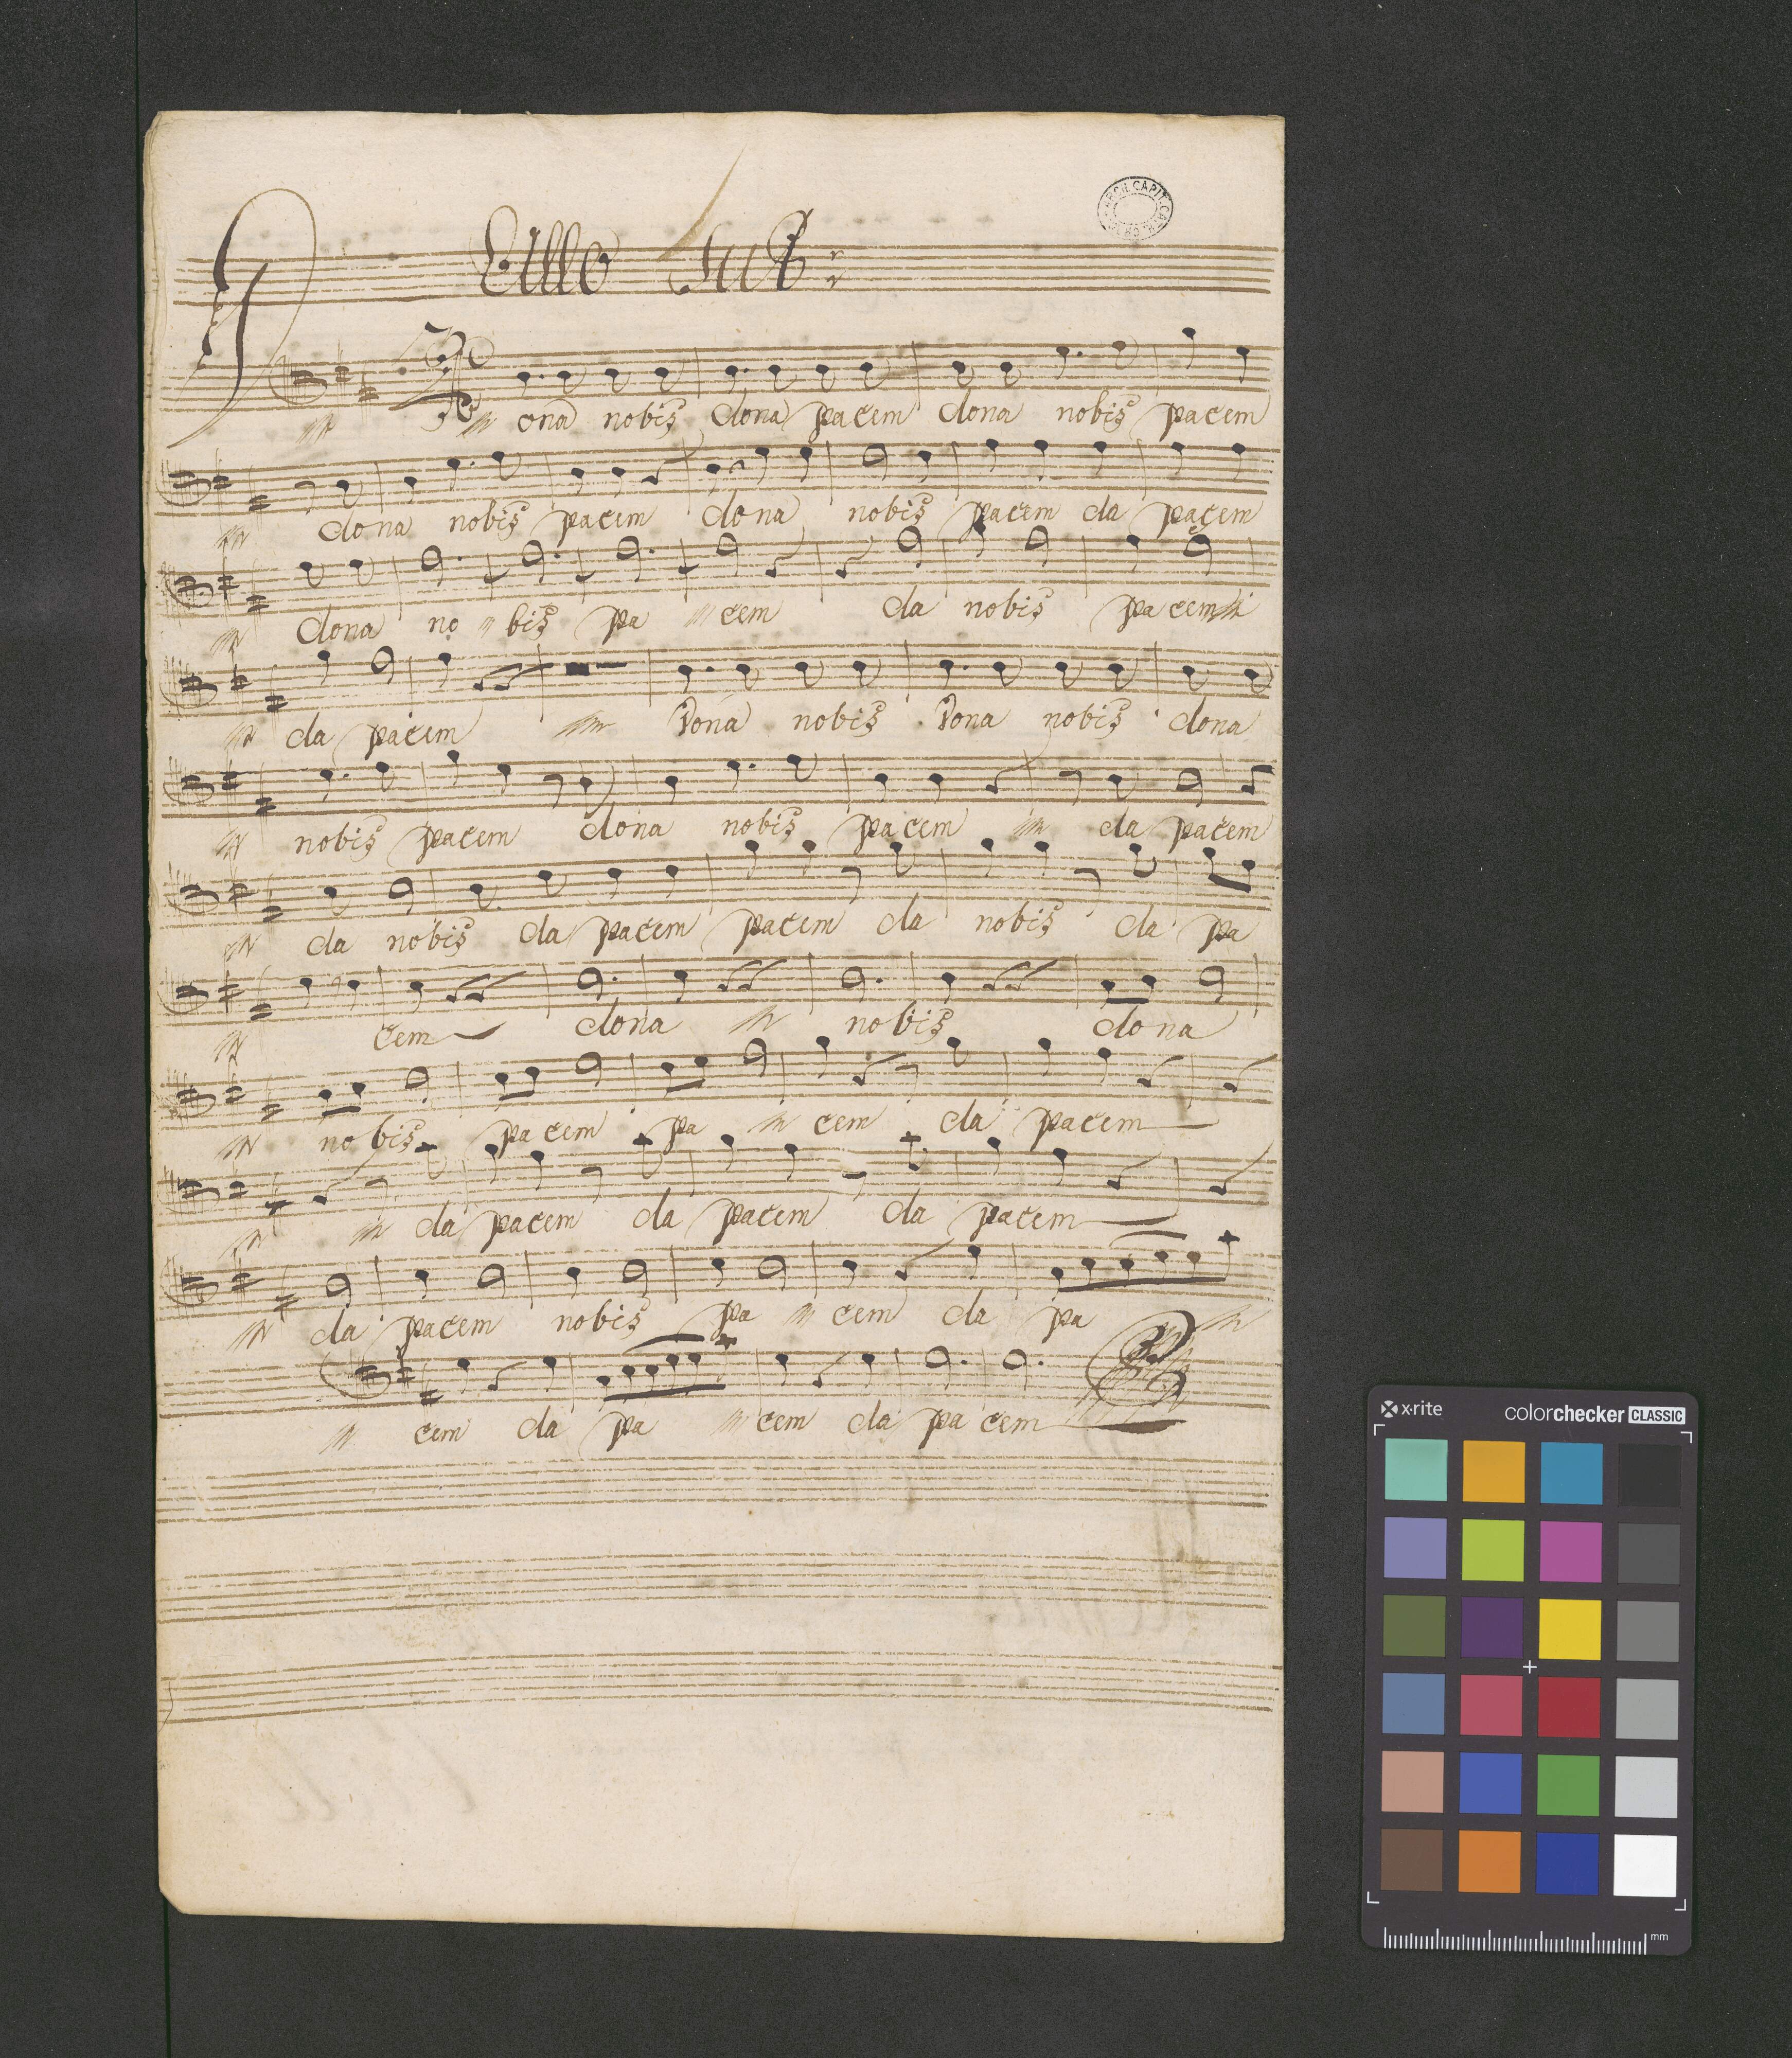 dona nobis dona pacem dona nobis pacem
dona nobis pacem dona nobis pacem da pacem
dona no bis pa cem da nobis pa cem
da pacem Dona nobis Dona nobis dona
nobis pacem dona nobis pacem da pacem
da nobis da pacem pacem da nobis da pa
cem dona nobis dona
no bis pa cem pa cem da pacem
da pacem da pacem da pacem
da pacem nobis pa cem da pa
cem da pa cem da pa cem
x-rite
colorchecker CLASSIC
mm